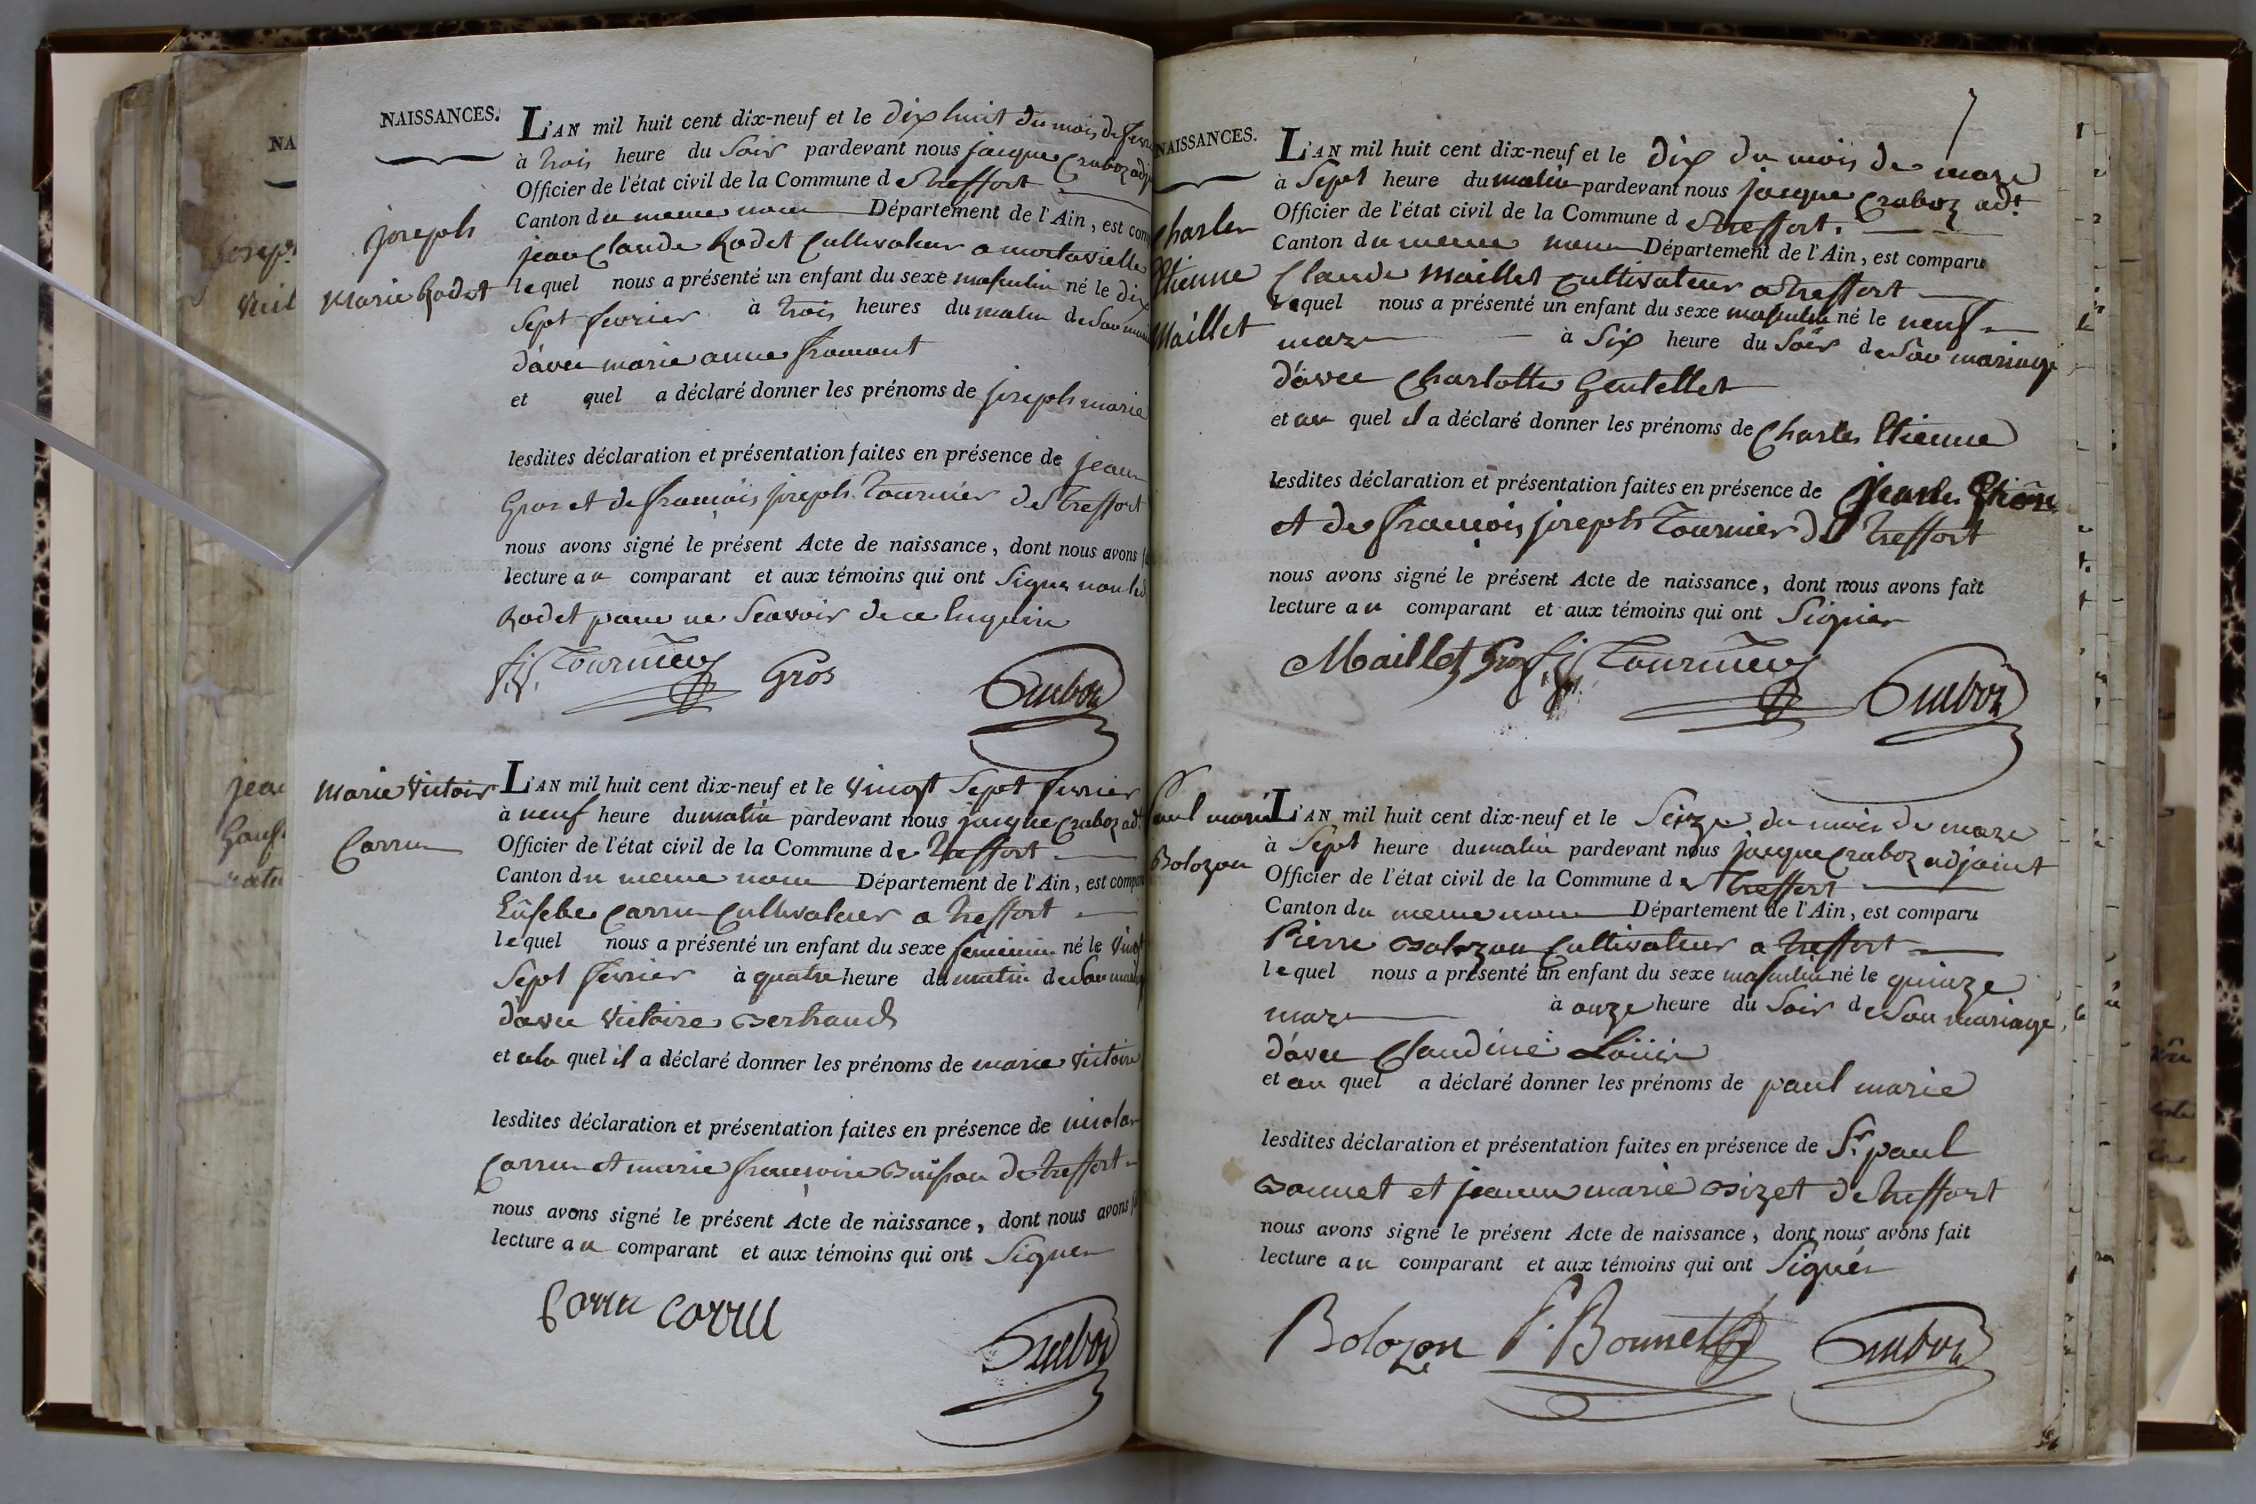 NAISSANCES.
joseph
marie Rodet
L'AN mil huit cent dix-neuf et le dix huit du mois de
à trois heure du Soir pardevant nous jacque Craboz
Officier de l'état civil de la Commune de treffort
Canton du meme nom Département de l'Ain, est
jean Claude Rodet Cultivateur a
lequel nous a présenté un enfant du sexe masculin né le dix
Sept fevrier à trois heures du matin de Son
d'avec marie anne fromont
et quel a déclaré donner les prénoms de joseph marie
lesdites déclaration et présentation faites en présence de jean
Gros et de françois joseph Tournier de treffort
nous avons signé le présent Acte de naissance, dont nous avons
lecture au comparant et aux témoins qui ont Signer non led
Rodet pour ne Scavoir de ce Enquire
Tournier Gros Craboz
marie Victoire
Carru
L'AN mil huit cent dix-neuf et le Vingt Sept fevrier
à neuf heure du matin pardevant nous jacque Craboz adt
Officier de l'état civil de la Commune de treffort
Canton du meme nom Département de l'Ain, est
Eusebe Carru Cultivateur a treffort
lequel nous a présenté un enfant du sexe feminin né le Vingt
Sept fevrier à quatre heure du matin de Son
d'avec Victoire Bertrand
et a la quel il a déclaré donner les prénoms de marie Victoire
lesdites déclaration et présentation faites en présence de nicolas
Carru et marie francoise Buisson de treffort
nous avons signé le présent Acte de naissance, dont nous avons
lecture au comparant et aux témoins qui ont Signer
Carru Carru
Craboz
NAISSANCES.
Charles
Etienne
Maillet
7
L'AN mil huit cent dix-neuf et le dix du mois de mare
à Sept heure du matin pardevant nous jacque Craboz adt
Officier de l'état civil de la Commune de treffort.
Canton du meme nom Département de l'Ain, est comparu
Claude Maillet Cultivateur a treffort
lequel nous a présenté un enfant du sexe masculin né le neuf
mare à Six heure du Soir de Son mariage
d'avec Charlotte Gentellet
et au quel il a déclaré donner les prénoms de Charles Etienne
lesdites déclaration et présentation faites en présence de
et de françois joseph Tournier de treffort
nous avons signé le présent Acte de naissance, dont nous avons fait
lecture au comparant et aux témoins qui ont Signer
Maillet Gros Tournier Craboz
Paul marie
Bolozon
L'AN mil huit cent dix-neuf et le Seize du mois de mare
à Sept heure du matin pardevant nous jacque Craboz adjoint
Officier de l'état civil de la Commune de treffort
Canton du meme nom Département de l'Ain, est comparu
Pierre Bolozon Cultivateur a treffort
lequel nous a présenté un enfant du sexe masculin né le quinze
mare à onze heure du Soir de Son mariage
d'avec Claudine
et au quel a déclaré donner les prénoms de paul marie
lesdites déclaration et présentation faites en présence de Sr paul
Bonnet et jeanne marie Bizet de treffort
nous avons signé le présent Acte de naissance, dont nous avons fait
lecture au comparant et aux témoins qui ont Signer
Bolozon P. Bonnet Craboz